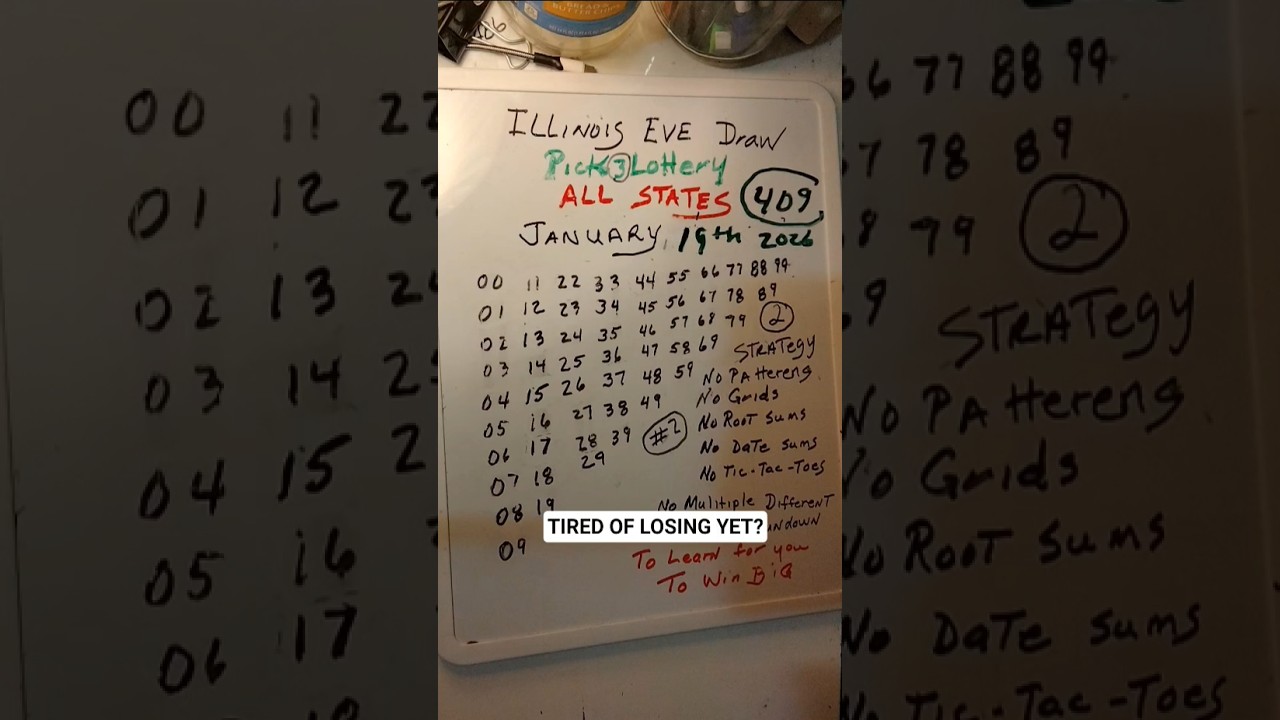 BREAD &
BUTTER CHIPS
ILLINOIS EVE Draw
Pick 3 Lottery
ALL STATES 409
JANUARY 19th 2026
00 11 22 33 44 55 66 77 88 99
01 12 23 34 45 56 67 78 89
02 13 24 35 46 57 68 79 2
03 14 25 36 47 58 69 STRATEgy
04 15 26 37 48 59 No PAttereng
05 16 27 38 49 No Grids
06 17 28 39 #2 No Root Sums
07 18 29 No Date Sums
No Tic-Tac-Toes
08 19 No Mulitiple Different
09
TIRED OF LOSING YET?
To Learn for you
To Win BiG